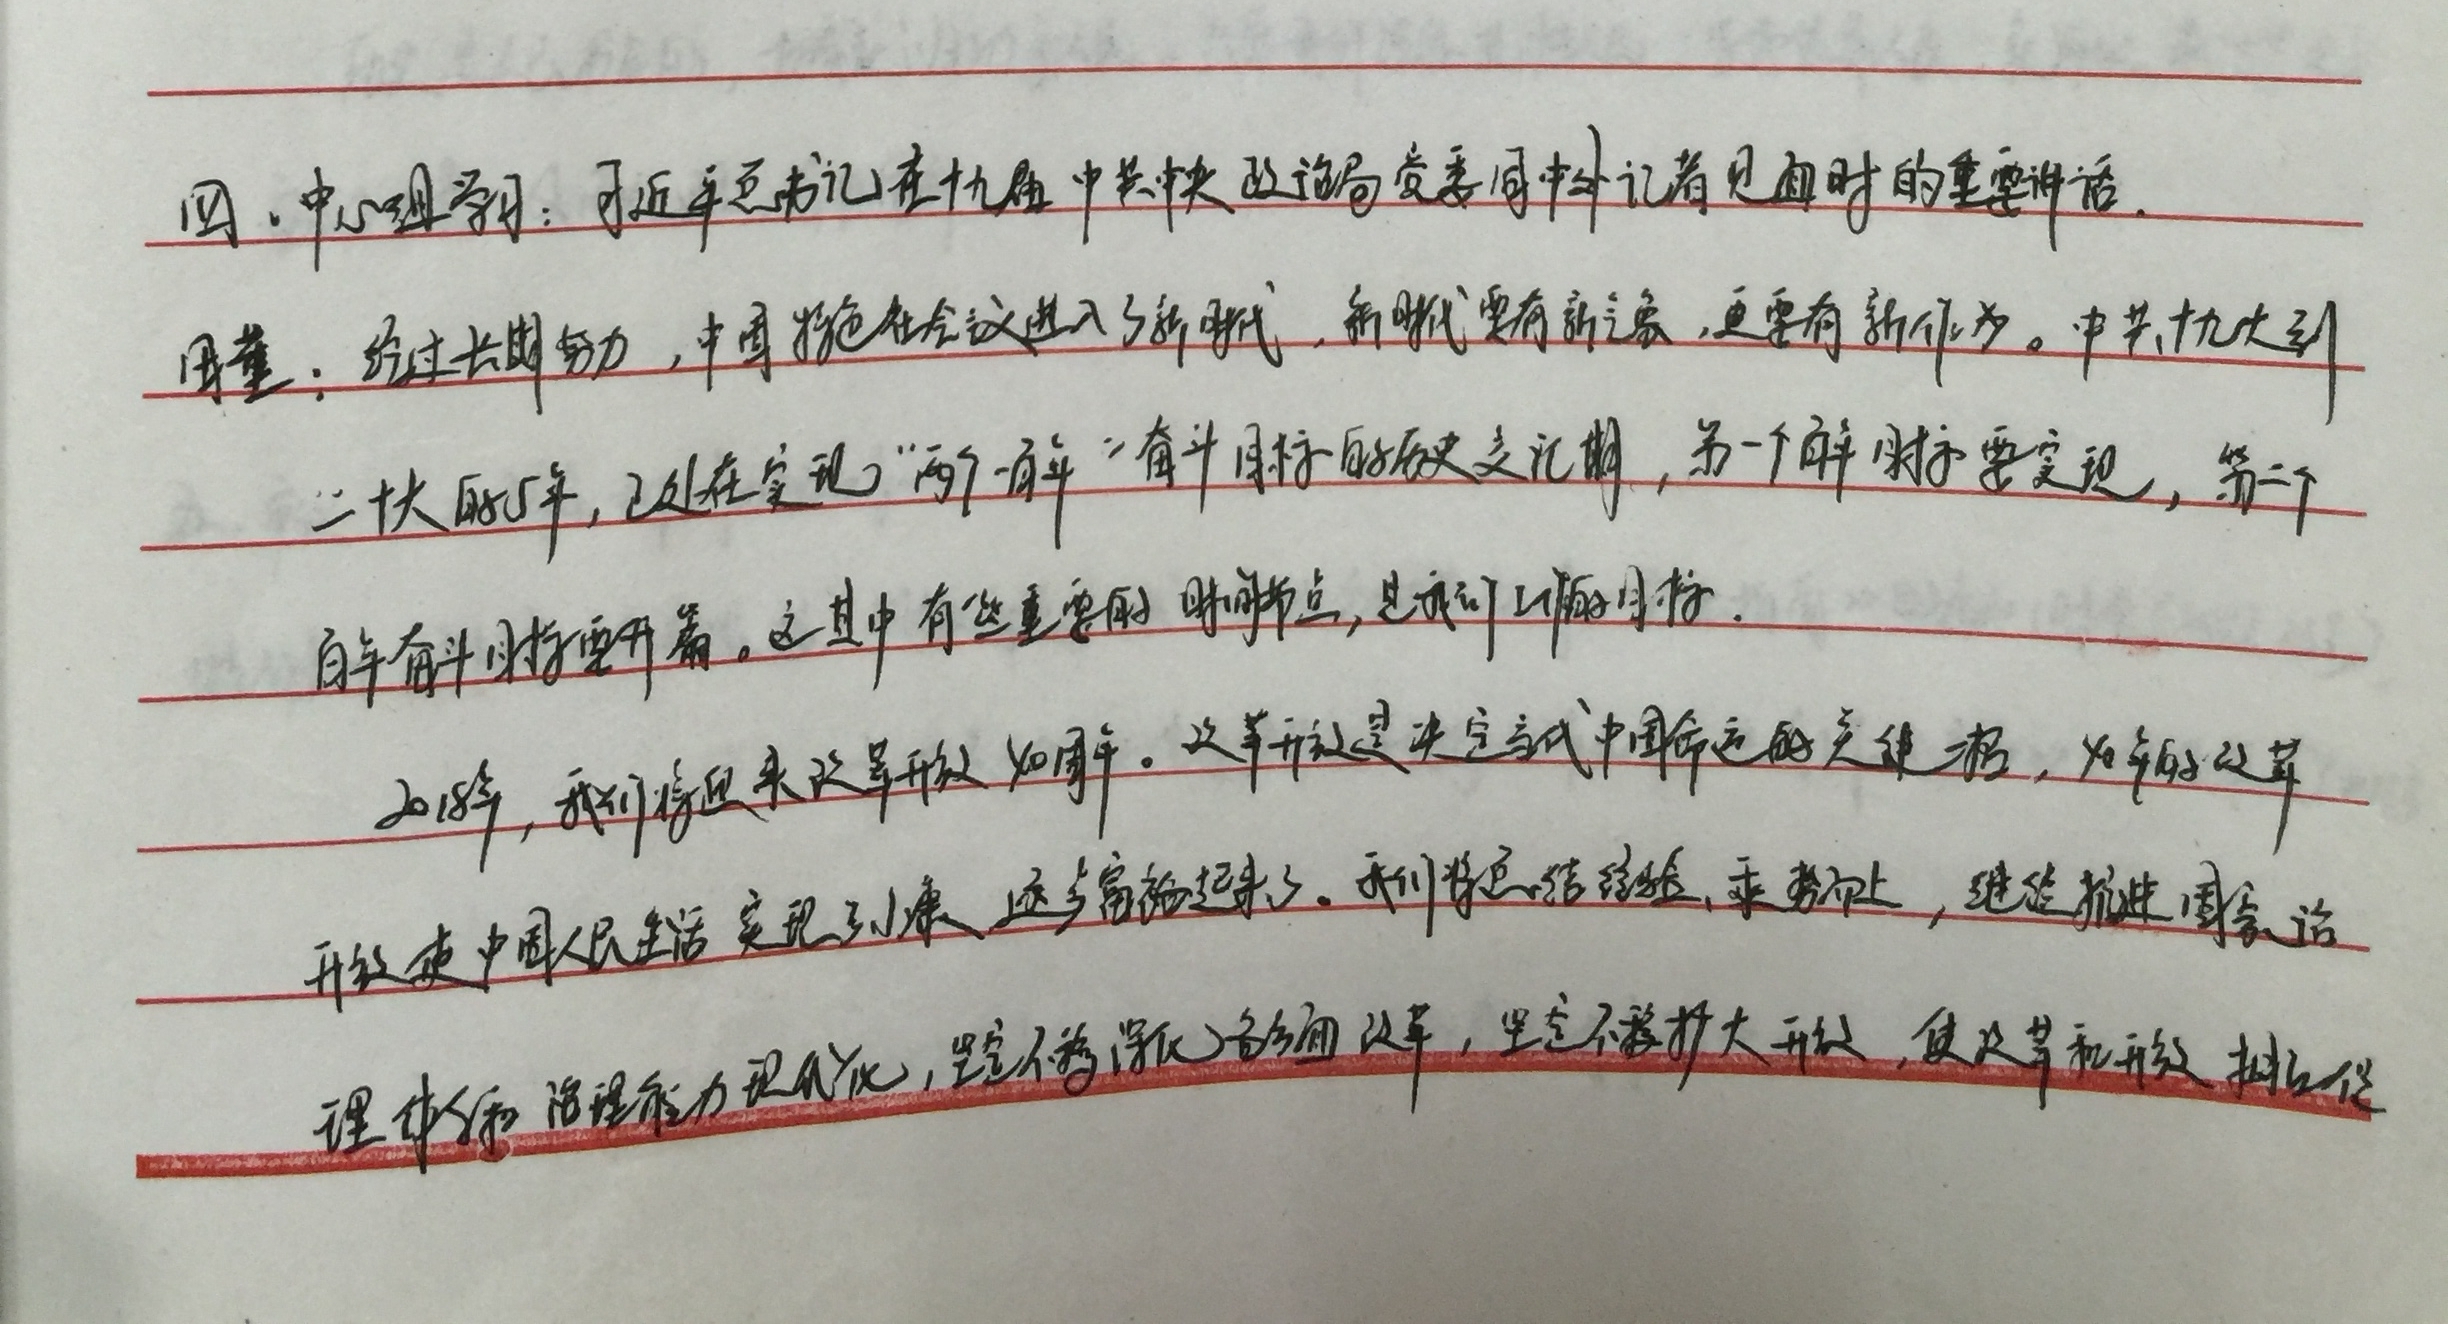 四、中心组学习：习近平总书记在十九届中共中央政治局常委同中外记者见面时的重要讲话.
周董：经过长期努力，中国特色社会主义进入了新时代，新时代要有新气象，更要有新作为。中共十九大到
二十大的5年，正处在实现"两个一百年"奋斗目标的历史交汇期，第一个百年目标要实现，第二个
百年奋斗目标要开篇。这其中有些重要的时间节点，是我们工作的目标.
2018年，我们将迎来改革开放40周年。改革开放是决定当代中国命运的关键一招，40年的改革
开放使中国人民生活实现了小康，逐步富裕起来了。我们将总结经验、乘势而上，继续推进国家治
理体系和治理能力现代化，坚定不移深化各方面改革，坚定不移扩大开放，使改革和开放相互促